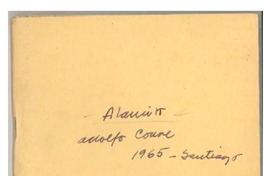 - Alamiro -
adolfo Couve
1965 - Santiago